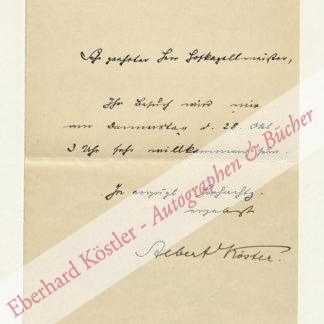 Sehr geehrter Herr Hofkapellmeister,
Ihr Besuch wird mir
am Donnerstag d. 28. Okt.
3 Uhr sehr willkommen sein.
In vorzügl. Hochachtg.
ergebenst
Albert Köster.
Eberhard Köstler - Autographen & Bücher